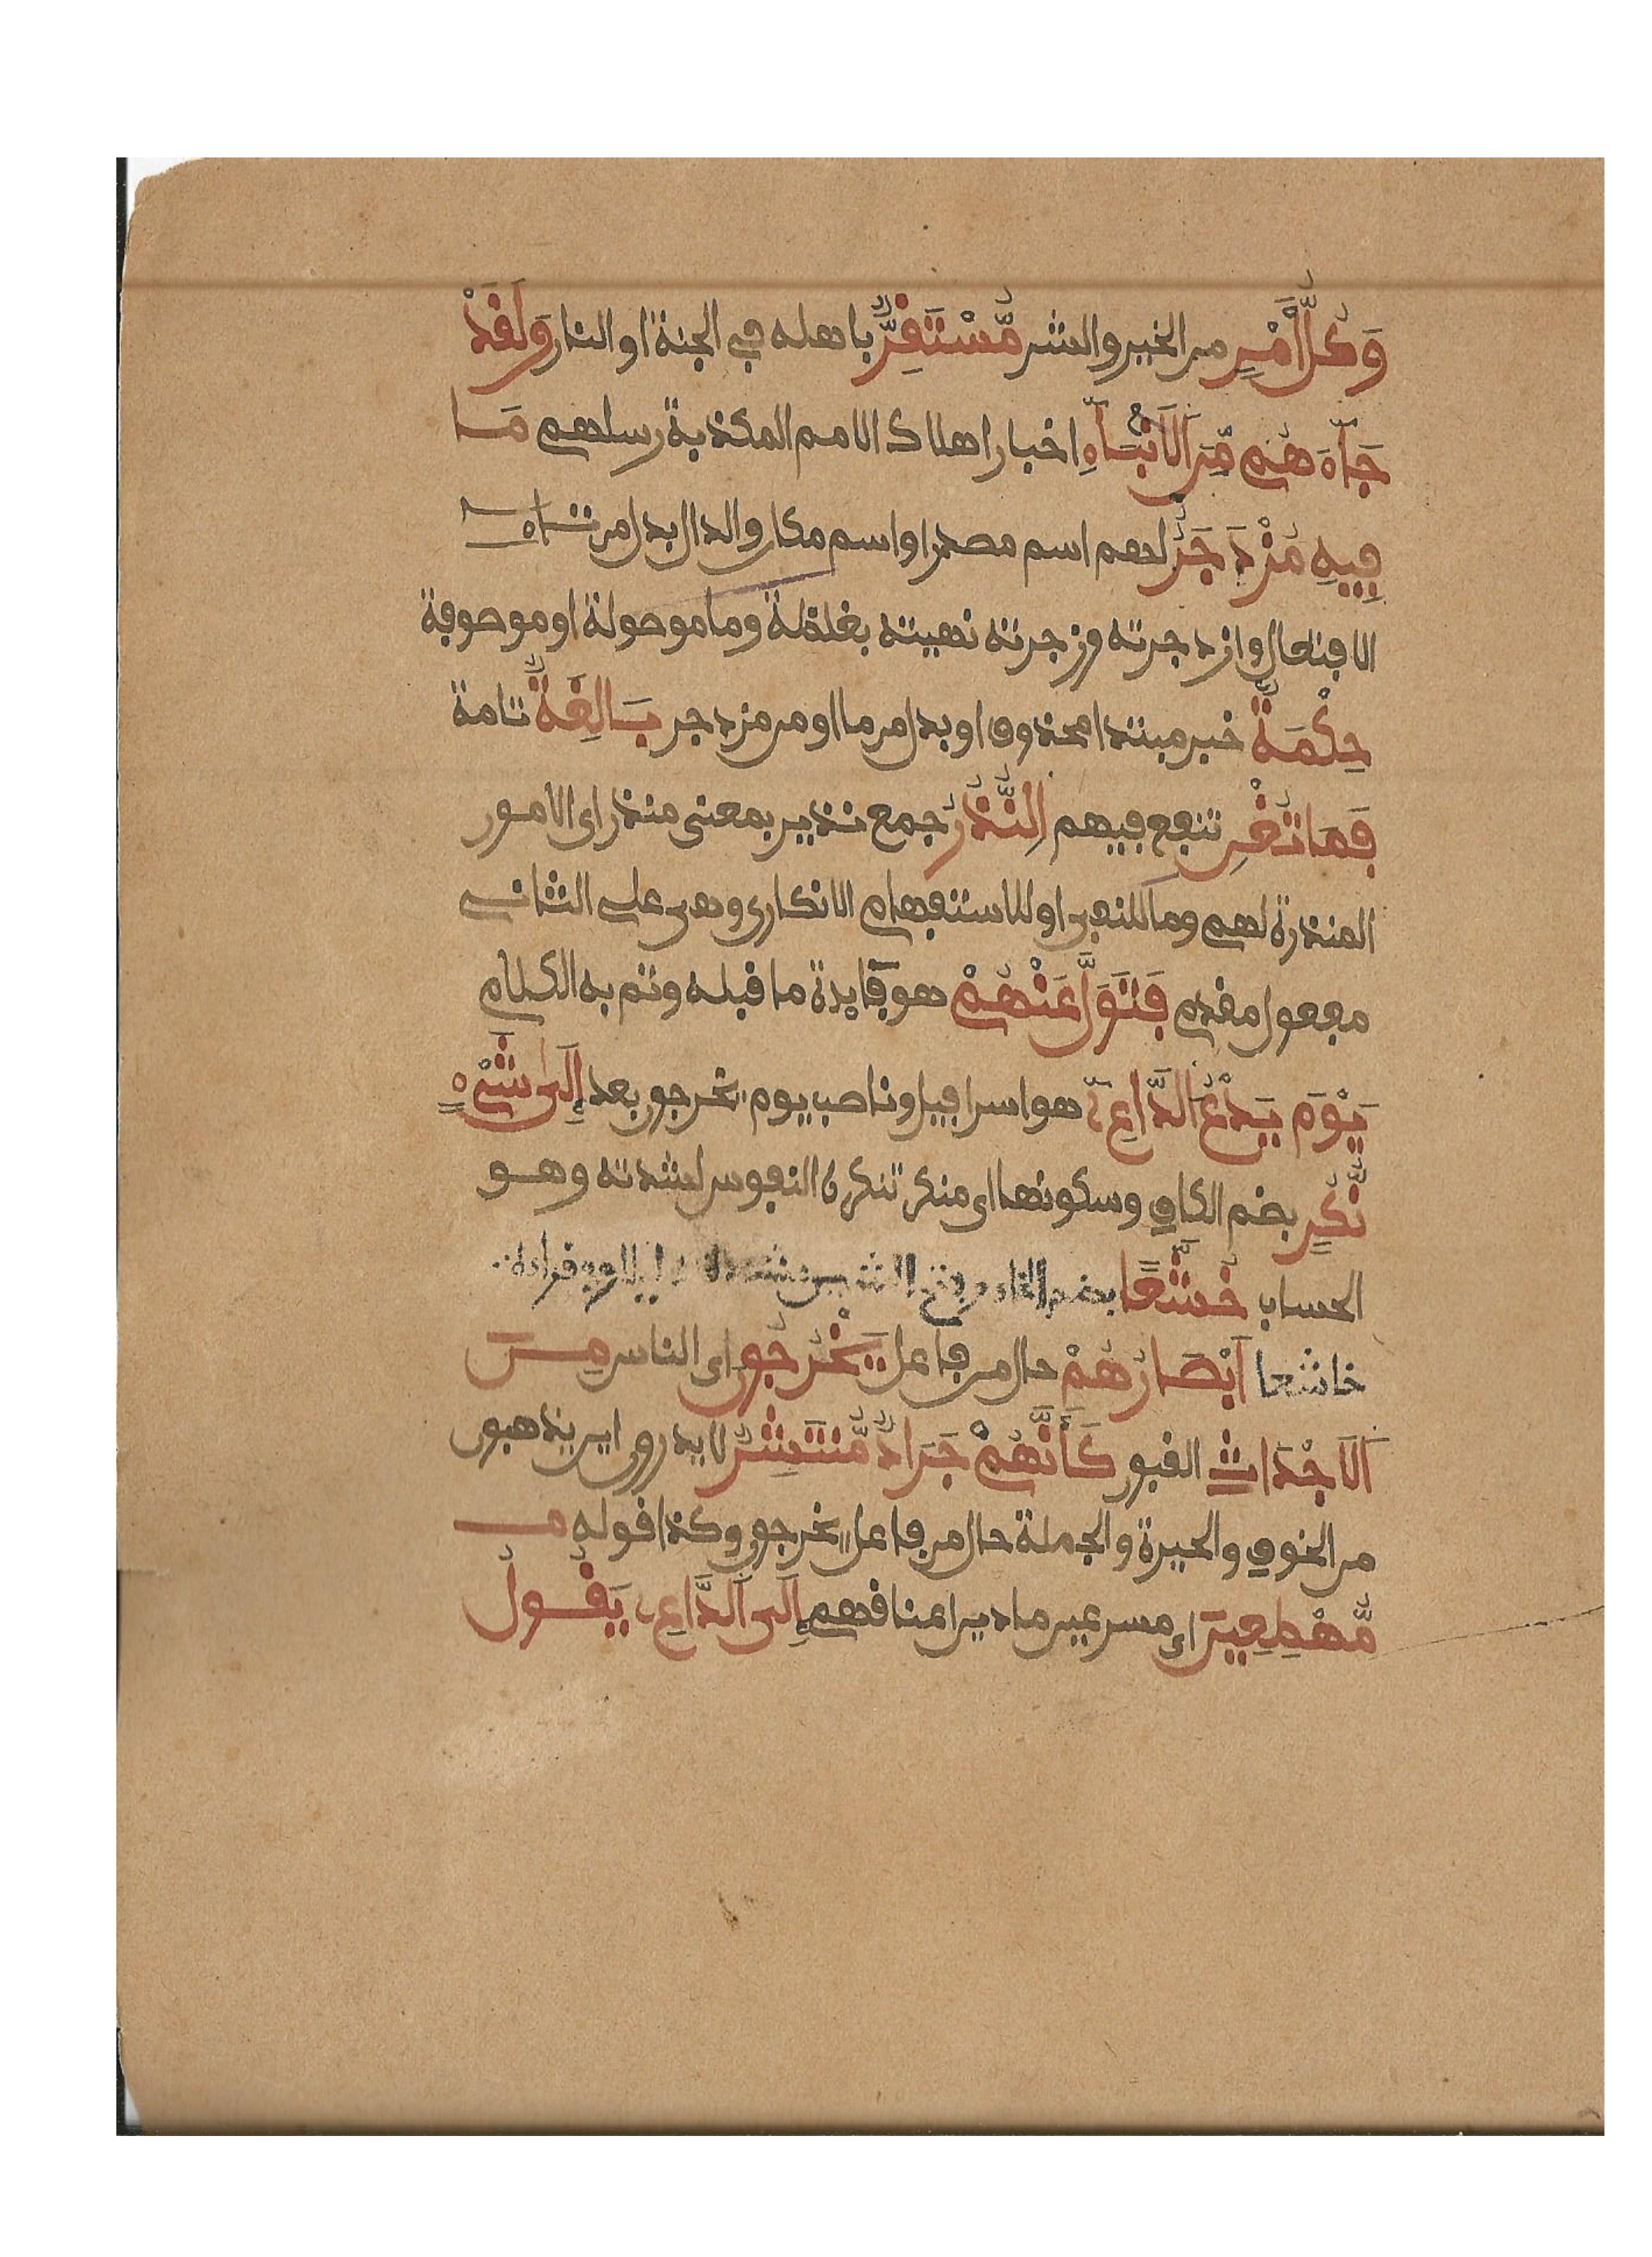 وَكُلُّ أَمْرٍ من الخير والشر مُّسْتَقِرٌّ باهله في الجنة او النار وَلَقَدْ
جَآءَ هُم مِّنَ اَلَانۢبَآءِ اخبار اهلاك الامم المكذبة رسلهم مَا
فِيهِ مُزْدَجَرٌ لهم اسم مصدر او اسم مكان والدال بدل من تاء
الافتعال وازدجرته وزجرته نهيته بغلظة وما موصولة او موصوفة
حِكْمَةٌ خبر مبتدا محذوف او بدل من ما او من مزدجر بَالِغَةٌ تامة
فَمَا تُغْنِ تنفع فيهم اِلنُّذُرُ جمع نذير بمعنى منذر اى الامور
المنذرة لهم وما للنفى او للاستفهام الانكارى وهى على الثانى
مفعول مقدم فَتَوَلَّ عَنْهُمْ هو فايدة ما قبله وتم به الكلام
يَوْمَ يَدْعُ اُلدَّاعِۦ هو اسرافيل وناصب يوم يخرجون بعد إِلَىٰ شَيْءٍ
نُّكُرٍ بضم الكاف وسكونها اى منكر تنكره النفوس لشدته وهو
الحساب خُشَّعًا بضم الخاء وفتح الشين مشددة وفى قراءة
خاشعا اَبْصَارُهُمْ حال من فاعل يَخْرُجُونَ اى الناس مِنَ
اَلَاجْدَاثِ القبور كَأَنَّهُمْ جَرَادٌ مُّنتَشِرٌ لا يدرون اين يذهبون
من الخوف والحيرة والجملة حال من فاعل يخرجون وكذا قوله
مُّهْطِعِينَ اى مسرعين مادين اعناقهم إِلَى اَلدَّاعِۦ يَقُولُ